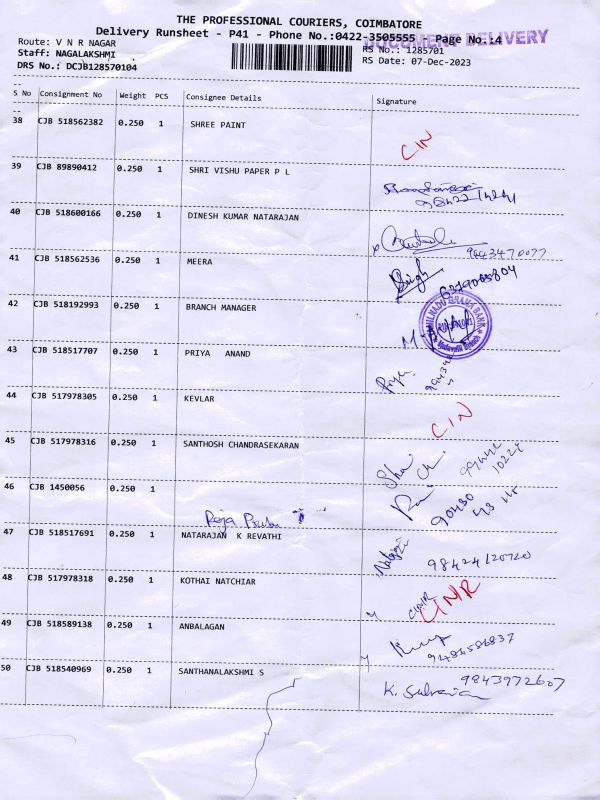 THE PROFESSIONAL COURIERS, COIMBATORE
Delivery Runsheet - P41 - Phone No.:0422-3505555 - Page No.:4
DOCUMENT DELIVERY
Route: V N R NAGAR
RS No.: 1285701
Staff: NAGALAKSHMI
RS Date: 07-Dec-2023
DRS No.: DCJB128570104
S No Consignment No Weight PCS Consignee Details Signature
38 CJB 518562382 0.250 1 SHREE PAINT
CIN
39 CJB 89890412 0.250 1 SHRI VISHU PAPER P L
40 CJB 518600166 0.250 1 DINESH KUMAR NATARAJAN
41 CJB 518562536 0.250 1 MEERA
Singh
42 CJB 518192993 0.250 1 BRANCH MANAGER
43 CJB 518517707 0.250 1 PRIYA ANAND
Priya
44 CJB 517978305 0.250 1 KEVLAR
CIN
45 CJB 517978316 0.250 1 SANTHOSH CHANDRASEKARAN
46 CJB 1450056 0.250 1
Roja
47 CJB 518517691 0.250 1 NATARAJAN K REVATHI
98424120720
48 CJB 517978318 0.250 1 KOTHAI NATCHIAR
49 CJB 518589138 0.250 1 ANBALAGAN
50 CJB 518540969 0.250 1 SANTHANALAKSHMI S
9843972607